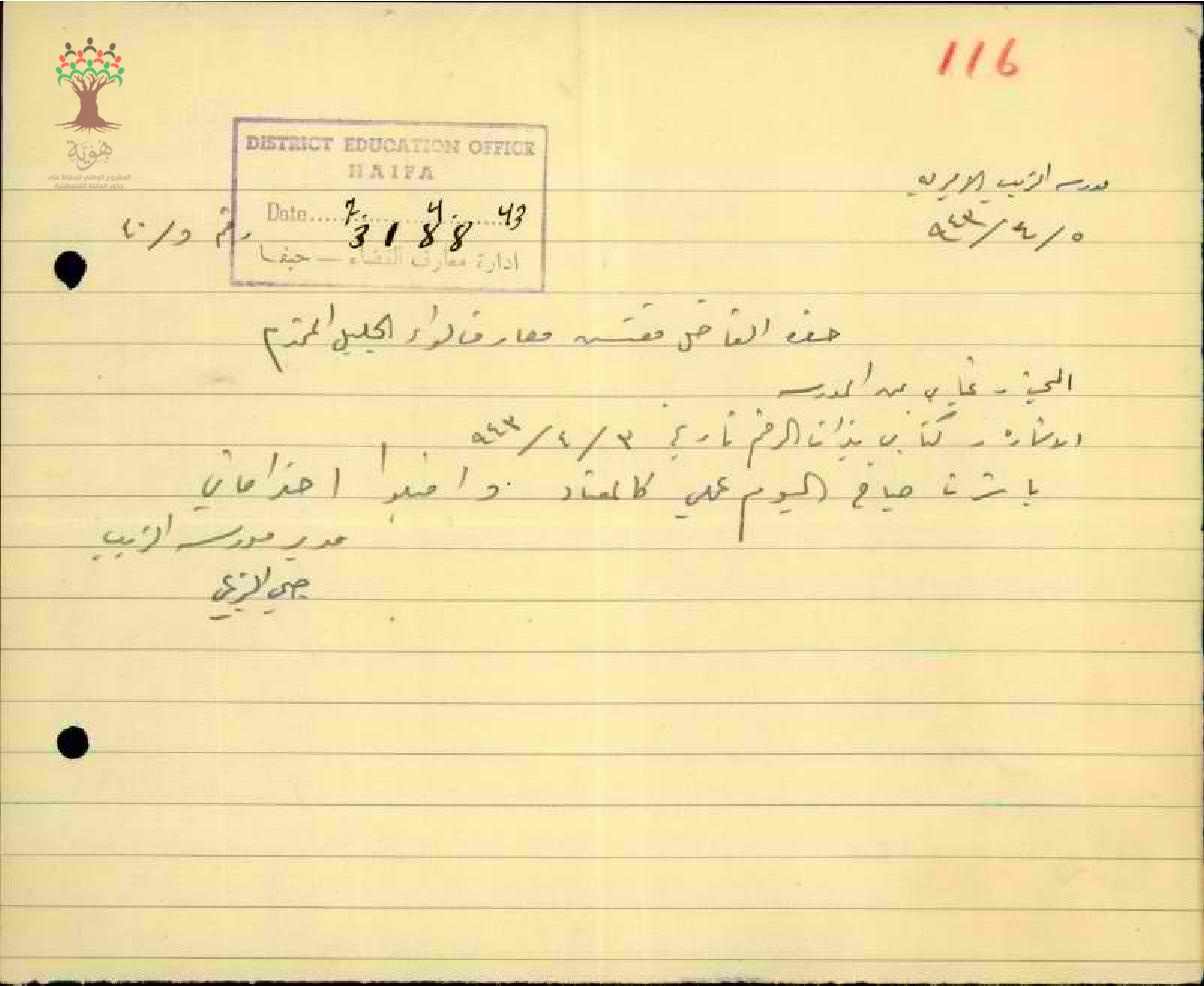 116
هوية
المشروع الوطني للحفاظ على
جذور العائلة الفلسطينية
DISTRICT EDUCATION OFFICE
HAIFA
Date 7. 4. 43
3188
ادارة معارف القضاء — حيفا
مدرسة الزيب الاميرية
٥/٤/٩٤٣
رقم و/
حضرة الفاضل مفتش معارف لواء الجليل المحترم
غيابي عن المدرسة
الاشارة كتابي بذات الرقم تاريخ ٣/٤/٩٤٣
باشرت صباح اليوم عملي كالمعتاد واقبلوا احتراماتي
مدير مدرسة الزيب